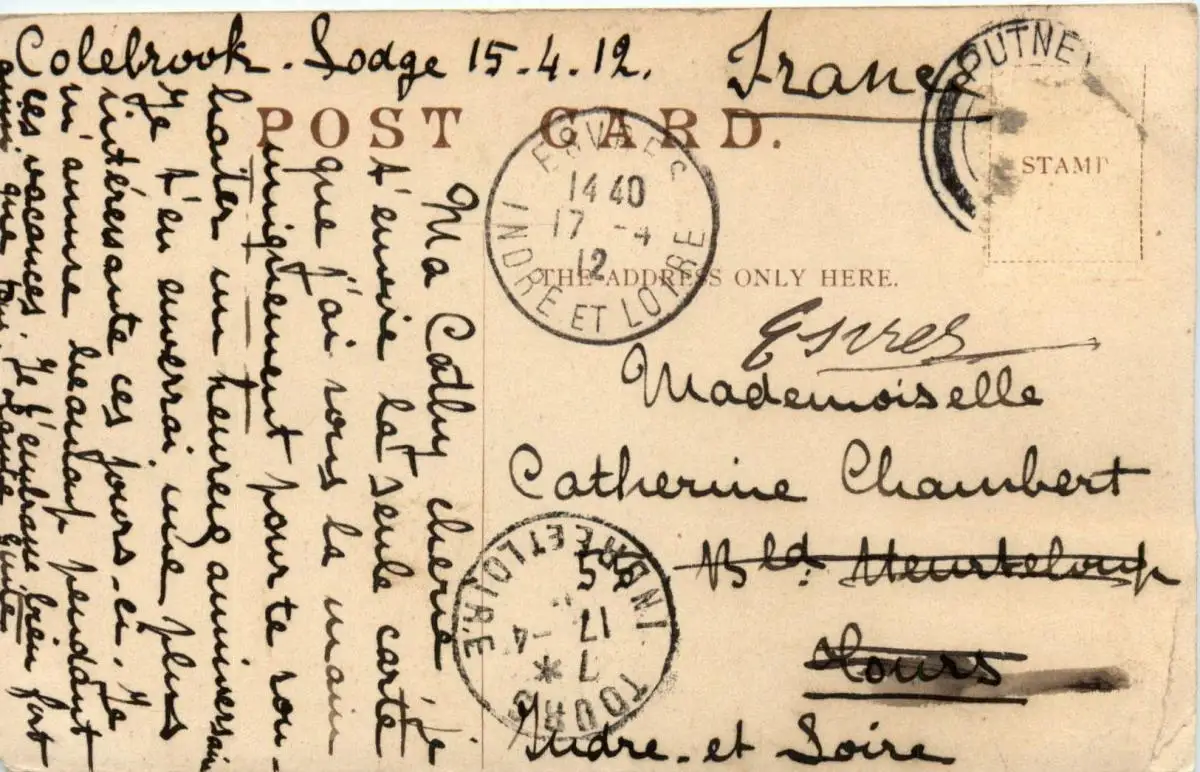 Colebrook. Lodge 15.4.12.
France
PUTNEY
POST CARD.
STAMP
ESVRES
14 40
17 -4
12
INDRE ET LOIRE
THE ADDRESS ONLY HERE.
Ma Cathy cherie, je
t'envoie la seule carte
que j'ai sous la main
uniquement pour te sou-
haiter un heureux anniversaire
Je t'en enverrai une plus
intéressante ces jours-ci. Je
m'amuse beaucoup pendant
ces vacances. Je t'embrasse bien fort
ainsi que
Esvres
Mademoiselle
Catherine Chambert
Bld. Heurteloup
Tours
Indre. et Loire
TOURS
7 *
17 -4
INDRE ET LOIRE